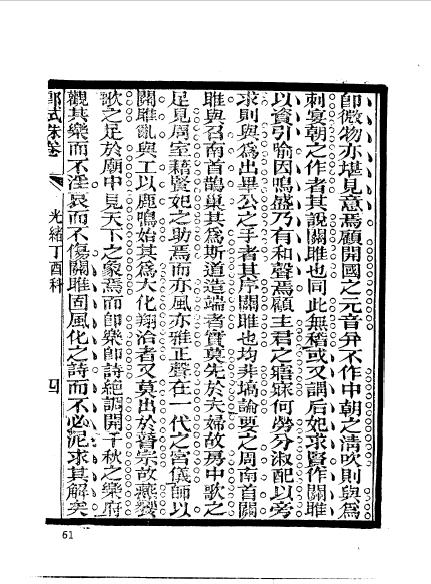 卽微物亦堪見意焉顧開國之元音弁不作中朝之清吹則與爲
刺宴朝之作者其說關雎也同此無稽或又謂后妃求賢作關雎
以資引喻因鳴盛乃有和聲焉顧主君之寤寐何勞分淑配以旁
求則與爲出畢公之手者其序關雎也均非塙論要之周南首關
雎與召南首鵲巢其爲斯道造端者實莫先於夫婦故房中歌之
足見周室藉賢妃之助焉而亦風亦雅正聲在一代之宮儀師以
關雎亂與工以鹿鳴始其爲大化翔洽者又莫出於瞽宗故燕
歌之足於廟中見天下之象焉而卽樂卽詩絕調開千秋之樂府
觀其樂而不淫哀而不傷關雎固風化之詩而不必泥求其解矣
鄉試硃卷
光緒丁酉科
四
61